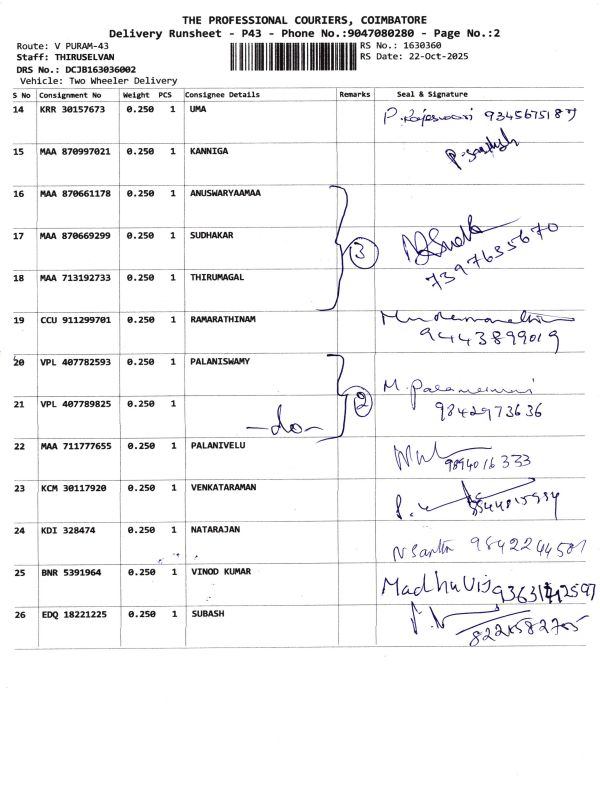 THE PROFESSIONAL COURIERS, COIMBATORE
Delivery Runsheet - P43 - Phone No.:9047080280 - Page No.:2
Route: V PURAM-43 RS No.: 1630360
Staff: THIRUSELVAN RS Date: 22-Oct-2025
DRS No.: DCJB163036002
Vehicle: Two Wheeler Delivery
S No Consignment No Weight PCS Consignee Details Remarks Seal & Signature
14 KRR 30157673 0.250 1 UMA
15 MAA 870997021 0.250 1 KANNIGA
16 MAA 870661178 0.250 1 ANUSWARYAAMAA
17 MAA 870669299 0.250 1 SUDHAKAR 3
7397635670
18 MAA 713192733 0.250 1 THIRUMAGAL
19 CCU 911299701 0.250 1 RAMARATHINAM
9443899019
20 VPL 407782593 0.250 1 PALANISWAMY
21 VPL 407789825 0.250 1 -do- 2 9842973636
22 MAA 711777655 0.250 1 PALANIVELU 9894016333
23 KCM 30117920 0.250 1 VENKATARAMAN
24 KDI 328474 0.250 1 NATARAJAN
25 BNR 5391964 0.250 1 VINOD KUMAR
26 EDQ 18221225 0.250 1 SUBASH